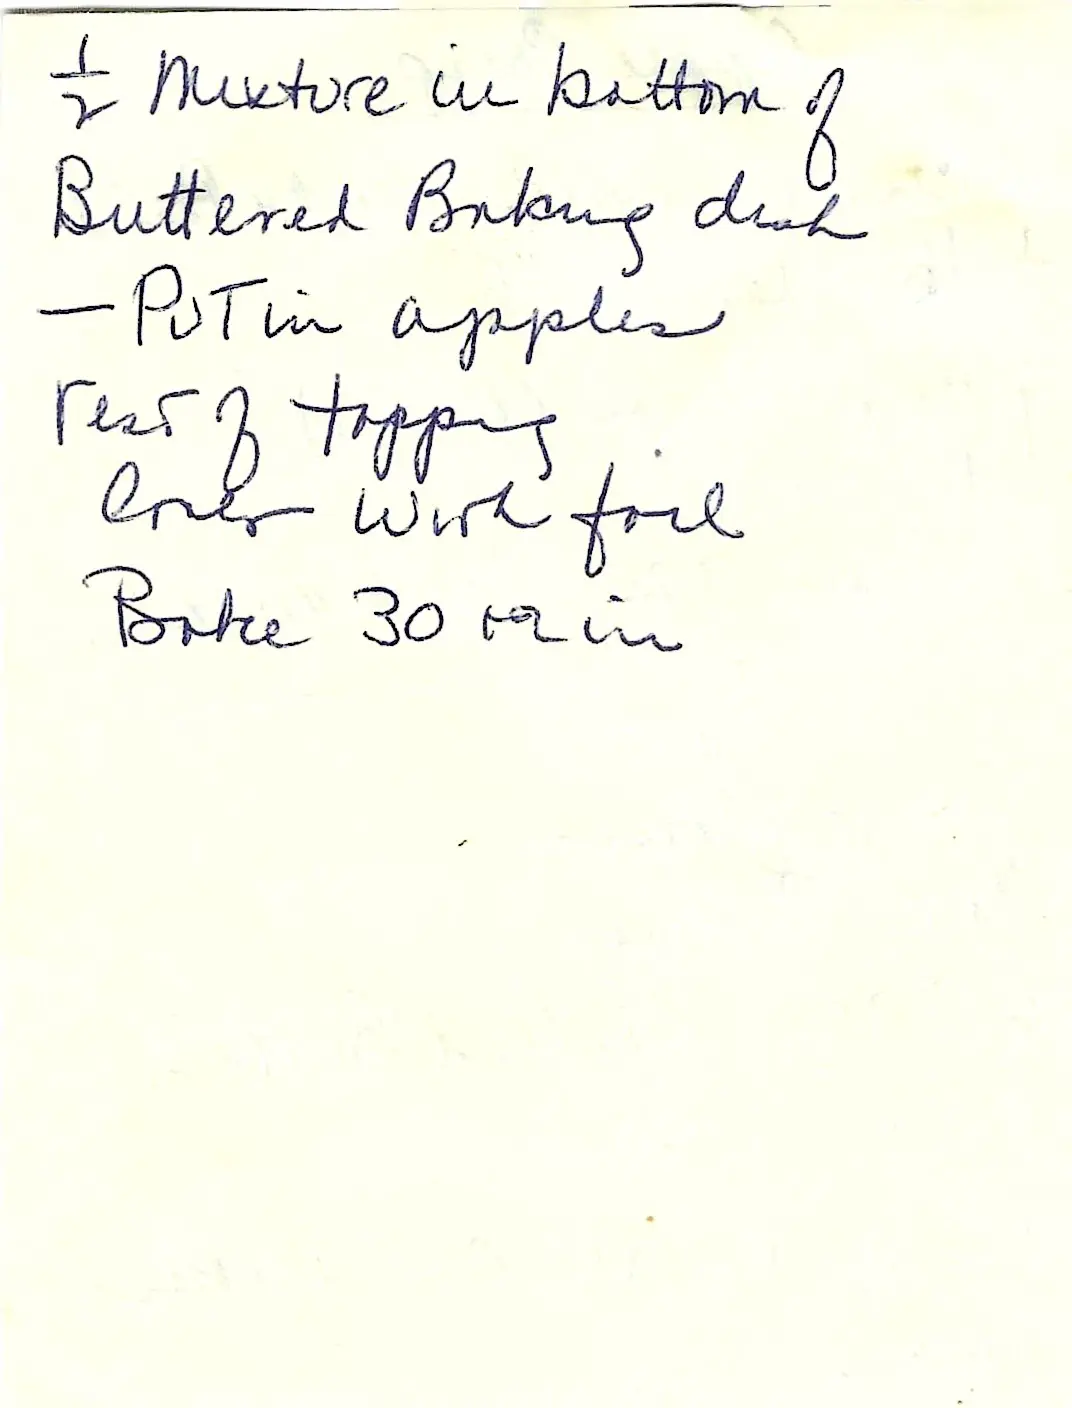 ½ Mixture in bottom of
Buttered Baking dish
— Put in apples
rest of topping
Cover with foil
Bake 30 min